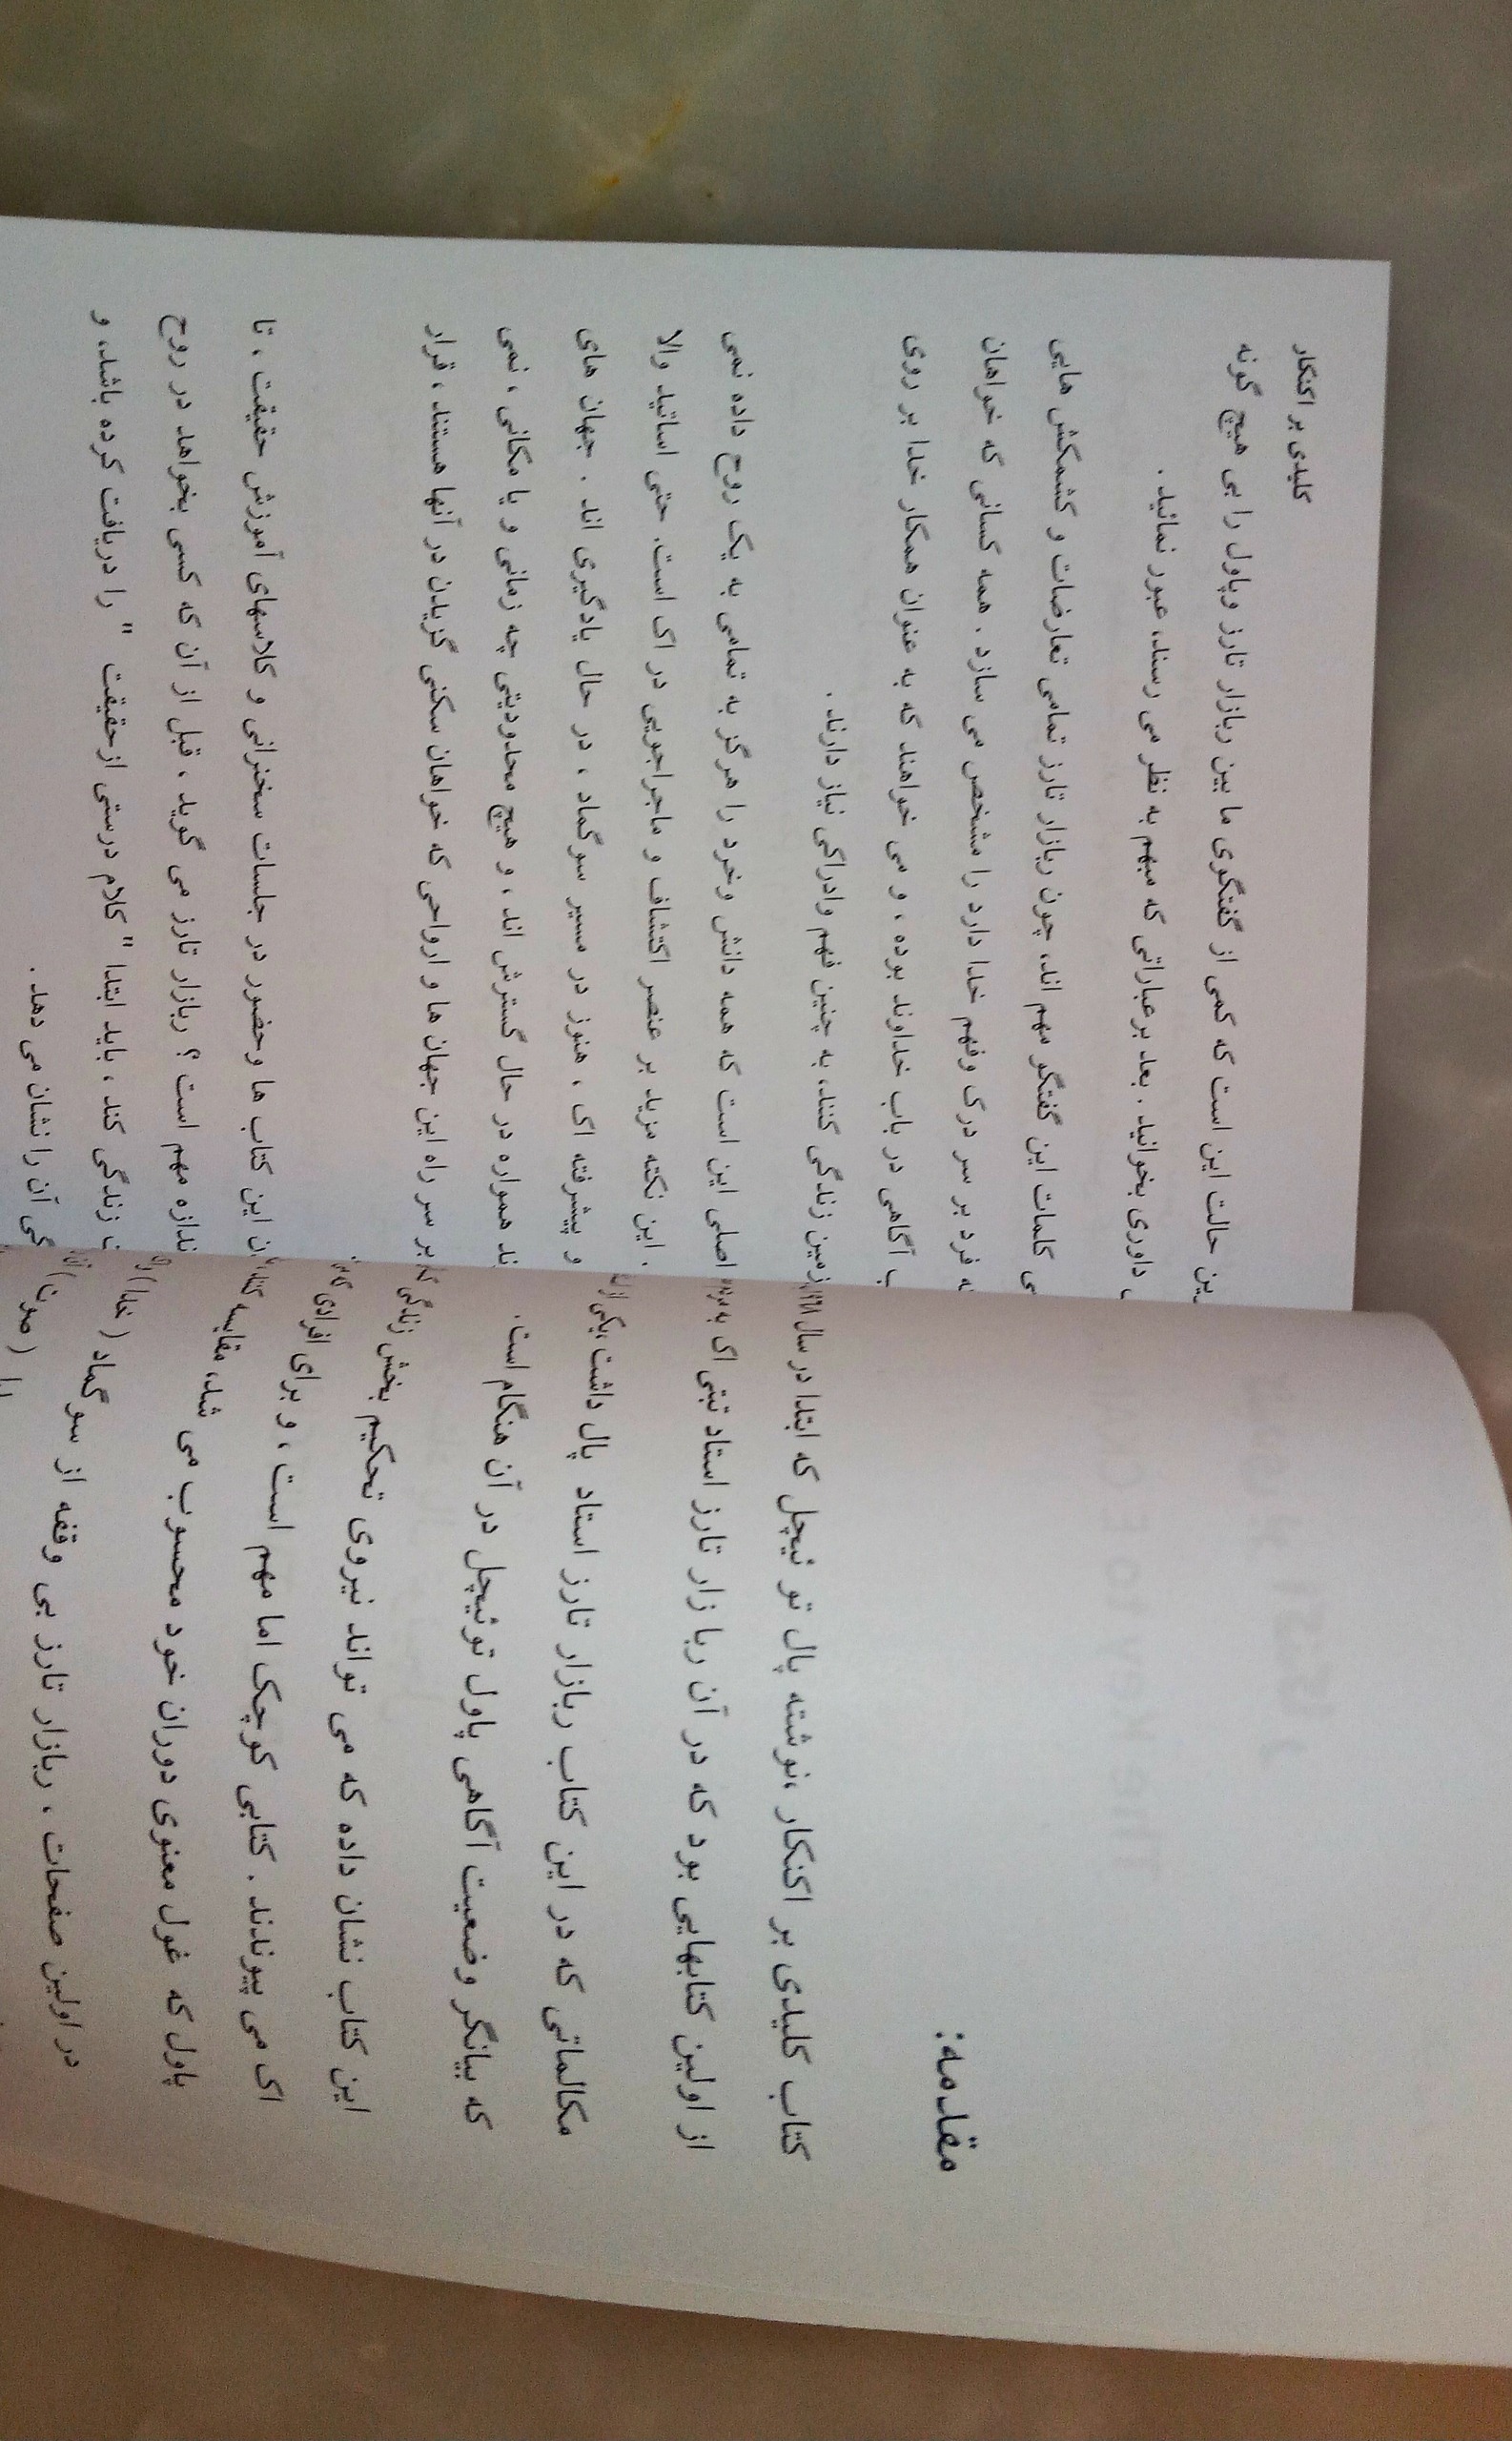 مقدمه:
کتاب کلیدی بر اکنکار ،نوشته پال تو ئیچل که ابتدا در سال ۱۹۶۸
از اولین کتابهایی بود که در آن ربا زار تارز استاد تبتی اک به
مکالماتی که در این کتاب ربازار تارز استاد پال داشت ،یکی از
که بیانگر وضعیت آگاهی پاول توئیچل در آن هنگام است.
این کتاب نشان داده که می تواند نیروی تحکیم بخش زندگی
اک می پیوندند . کتابی کوچک اما مهم است ، و برای افرادی
پاول که غول معنوی دوران خود محسوب می شد، مقایسه
در اولین صفحات ، ربازار تارز بی وقفه از سوگماد ( خدا )
( صوت )
کلیدی بر اکنکار
حالت این است که کمی از گفتگوی ما بین ربازار تارز وپاول را بی هیچ گونه
داوری بخوانید . بعد برعباراتی که مبهم به نظر می رسند، عبور نمائید .
کلمات این گفتگو مهم اند، چون ربازار تارز تمامی تعارضات و کشمکش هایی
فرد بر سر درک وفهم خدا دارد را مشخص می سازد . همه کسانی که خواهان
آگاهی در باب خداوند بوده ، و می خواهند که به عنوان همکار خدا بر روی
زمین زندگی کنند، به چنین فهم وادراکی نیاز دارند .
اصلی این است که همه دانش وخرد را هرگز به تمامی به یک روح داده نمی
. این نکته مزید بر عنصر اکتشاف و ماجراجویی در اک است. حتی اساتید والا
و پیشرفته اک ، هنوز در مسیر سوگماد ، در حال یادگیری اند . جهان های
همواره در حال گسترش اند ، و هیچ محدودیتی چه زمانی و یا مکانی ، نمی
بر سر راه این جهان ها و ارواحی که خواهان سکنی گزیدن در آنها هستند ، قرار
این کتاب ها وحضور در جلسات سخنرانی و کلاسهای آموزش حقیقت ، تا
اندازه مهم است ؟ ربازار تارز می گوید ، قبل از آن که کسی بخواهد در روح
زندگی کند ، باید ابتدا " کلام درستی ازحقیقت " را دریافت کرده باشد، و
آن را نشان می دهد .